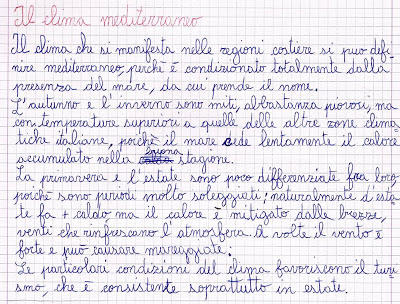 Il clima mediterraneo
Il clima che si manifesta nelle regioni costiere si può defi-
nire mediterraneo, perchè è condizionato totalmente dalla
presenza del mare, da cui prende il nome.
L'autunno e l'inverno sono miti, abbastanza piovosi, ma
con temperature superiori a quelle delle altre zone clima-
tiche italiane, poichè il mare cede lentamente il calore
accumulato nella buona stagione.
La primavera e l'estate sono poco differenziate fra loro
poichè sono periodi molto soleggiati; naturalmente d'esta-
te fa + caldo, ma il calore è mitigato dalle brezze,
venti che rinfrescano l'atmosfera. A volte il vento è
forte e può causare mareggiate.
Le particolari condizioni del clima favoriscono il turi-
smo, che è consistente soprattutto in estate.